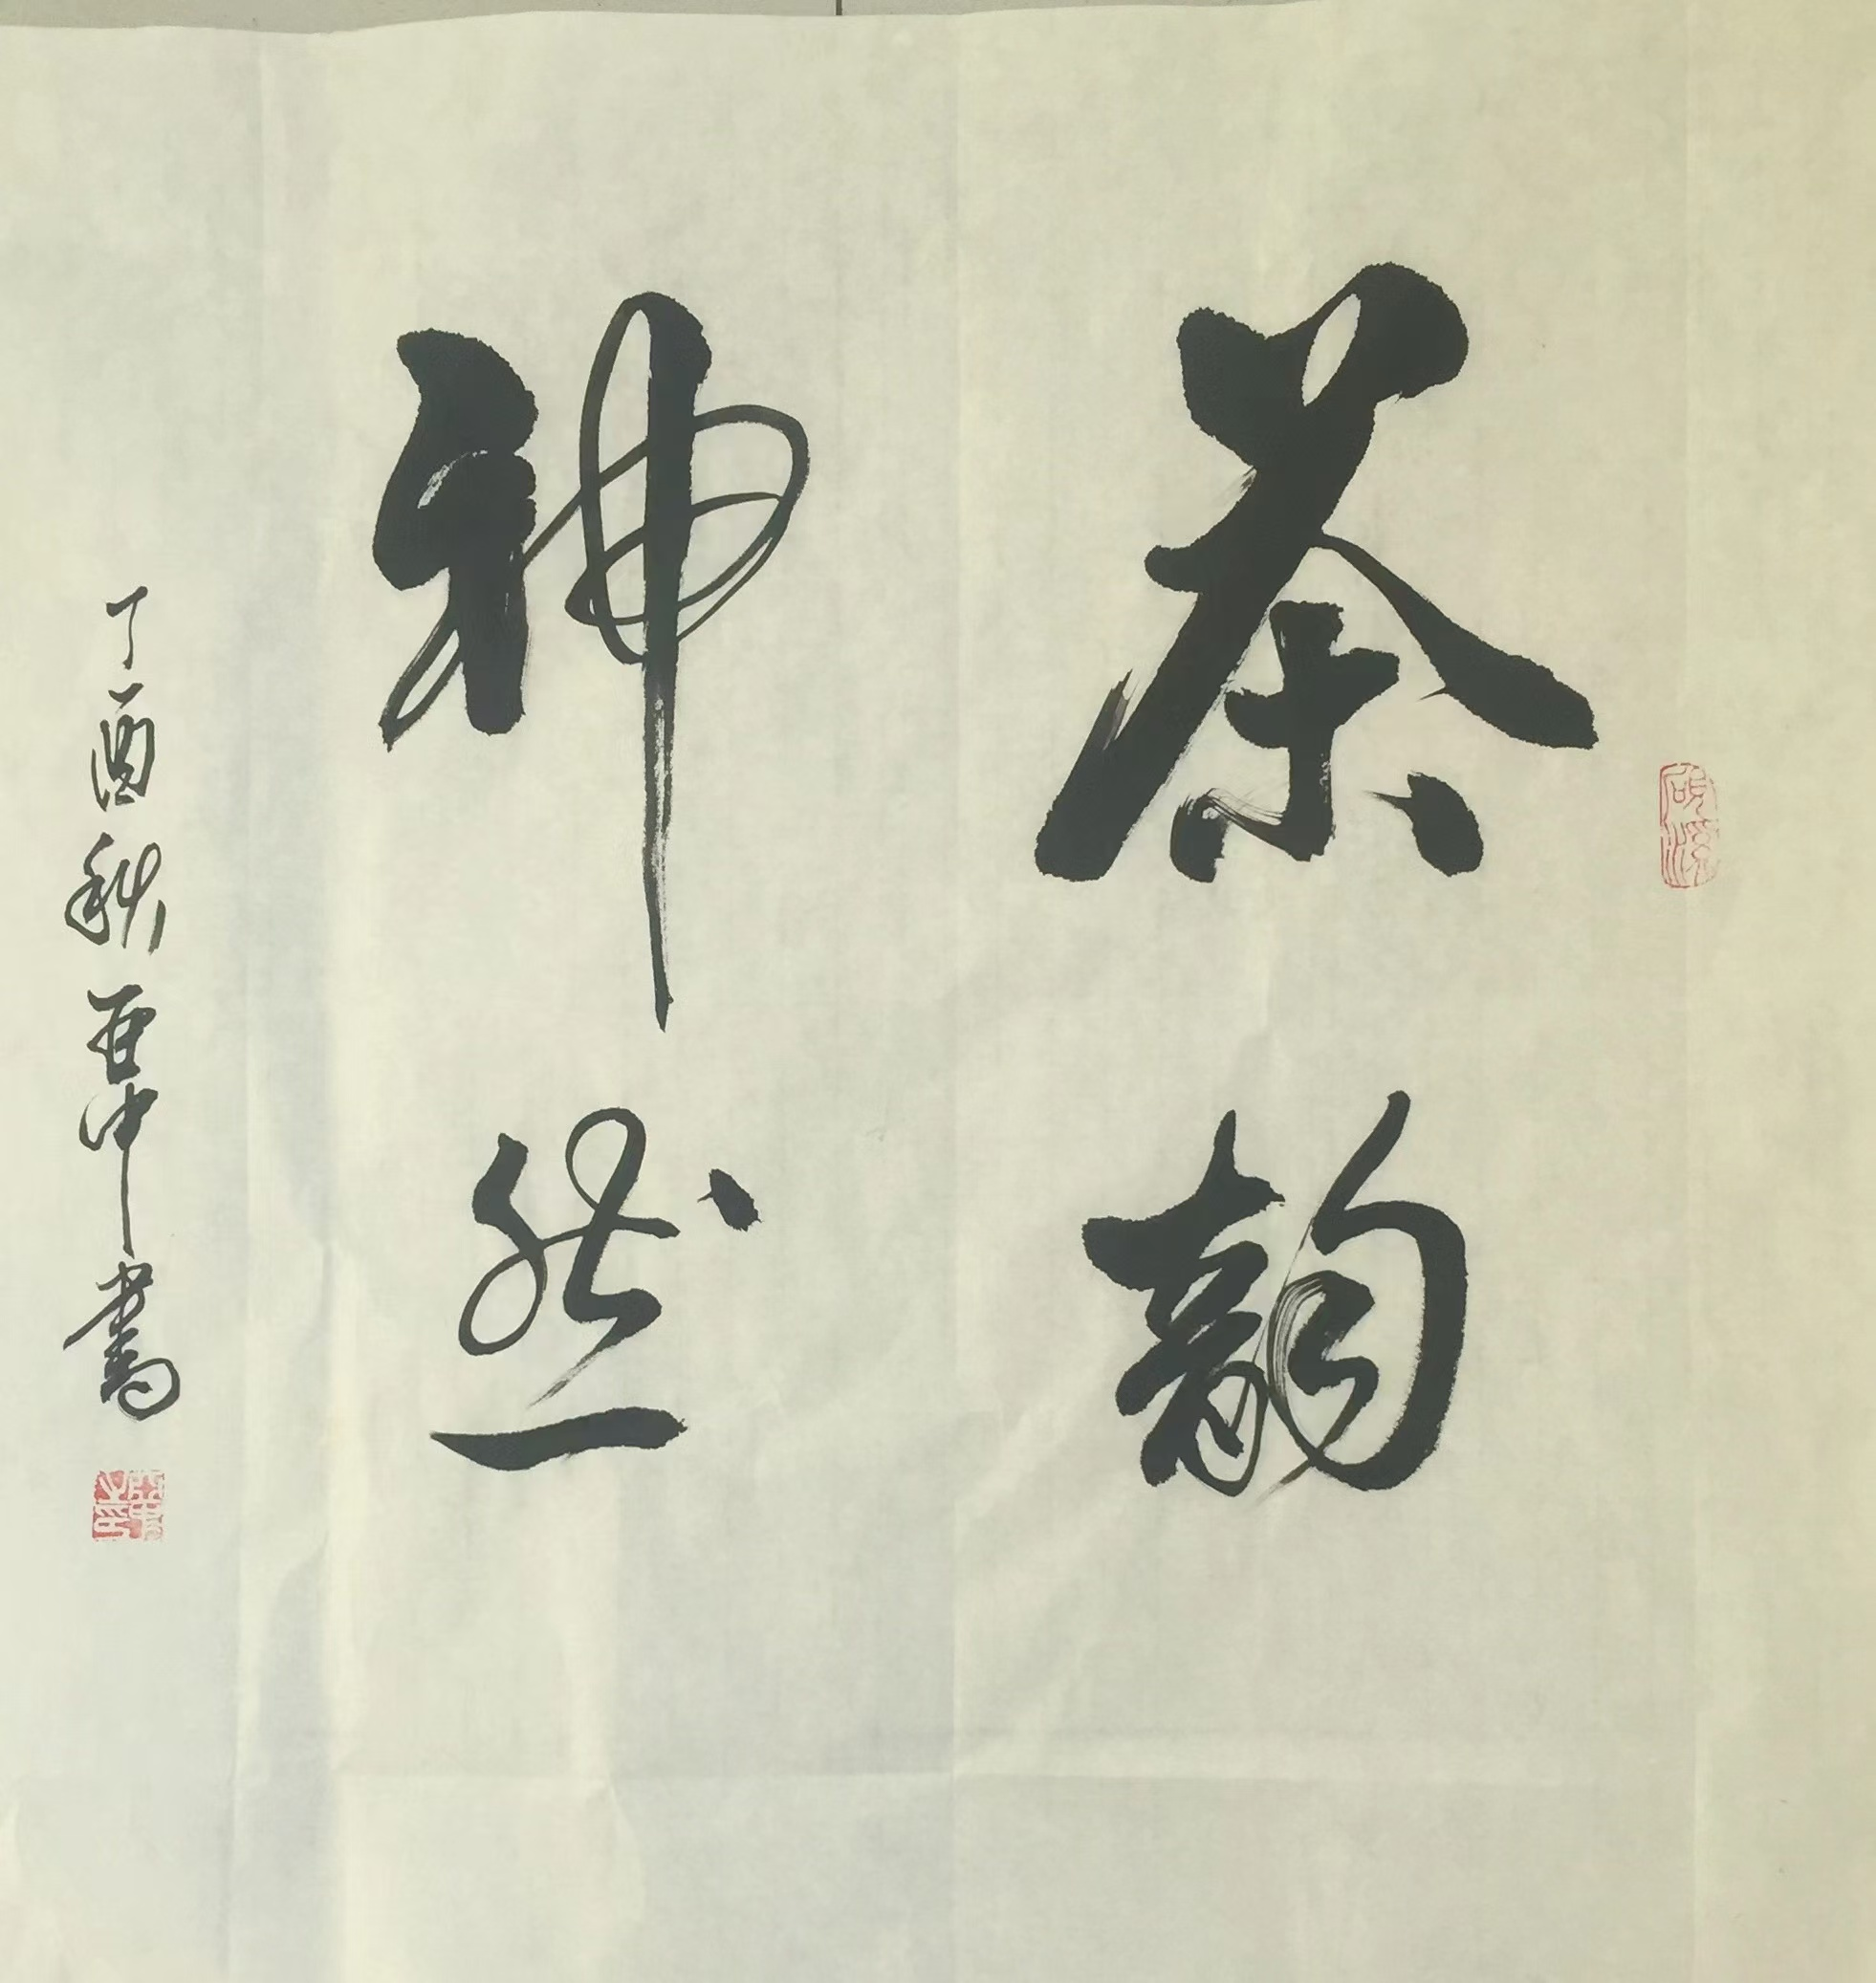 茶韵
神然
丁酉秋亚中書